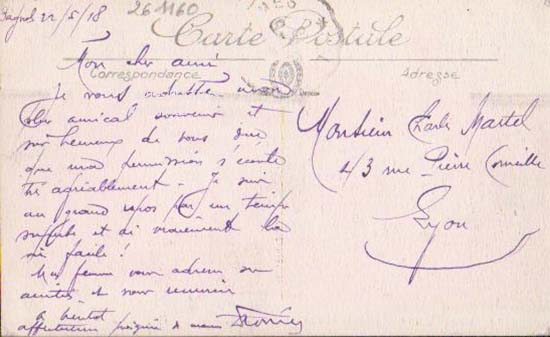 Bagnols 22/5/18
261160
Carte Postale
Correspondance
Adresse
Mon cher ami
Je vous adresse mon
plus amical souvenir et
suis heureux de vous dire
que ma permission s'écoule
très agréablement. Je suis
au grand repos par un temps
superbe et di vraiement la
vie facile !
Ma femme vous adresse ses
amitiés et vous remercie
a bientot
affectueuse poignée de mains
Monsieur Charles Martel
43 rue Pierre Corneille
Lyon